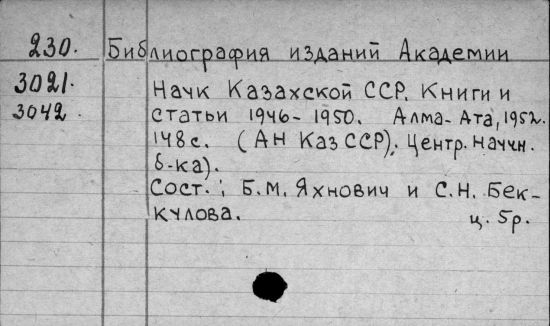 230. Библиография изданий Академии
3021. Наук Казахской ССР. Книги и
3042. статьи 1946-1950. Алма-Ата, 1952.
148с. (АН Каз ССР). Центр. научн.
б-ка).
Сост.: Б.М. Яхнович и С.Н. Бек-
кулова. ц. 5р.